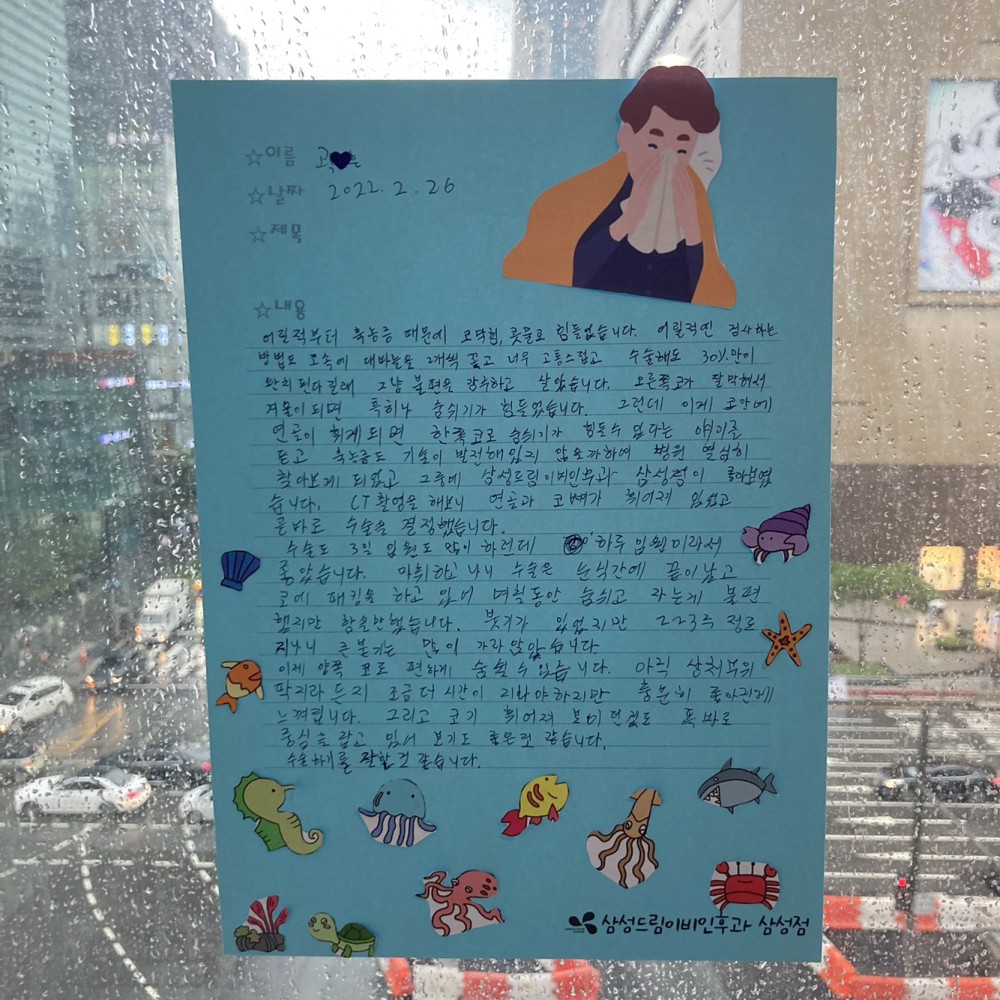 ☆이름 고
☆날짜 2022. 2. 26
☆제목
☆내용
어릴적부터 축농증 때문에 코막힘, 콧물로 힘들었습니다. 어릴적엔 검사하는
방법도 코속에 대바늘을 2개씩 꽂고 너무 고통스럽고 수술해도 30%만이
완치 된다길래 그냥 불편을 감수하고 살았습니다. 오른쪽코가 잘 막혀서
겨울이 되면 특히나 숨쉬기가 힘들었습니다. 그런데 이게 코안에
연골이 휘게 되면 한쪽코로 숨쉬기가 힘들수 있다는 얘기를
듣고 축농증도 기술이 발전해 있지 않을까하여 병원 열심히
찾아보게 되었고 그중에 삼성드림이비인후과 삼성점이 좋아보였
습니다. CT촬영을 해보니 연골과 코뼈가 휘어져 있었고
곧바로 수술을 결정했습니다.
수술도 3일 입원도 많이 하던데 하루 입원이라서
좋았습니다. 마취하고 나니 수술은 순식간에 끝이났고
코에 패킹을 하고 있어 며칠동안 숨쉬고 자는게 불편
했지만 참을만 했습니다. 붓기가 있었지만 2~3주 정도
지나니 큰 붓기는 많이 가라 앉았습니다
이제 양쪽 코로 편하게 숨쉴 수 있습니다. 아직 상처부위
딱지라든지 조금 더 시간이 지나야하지만 충분히 좋아진게
느껴집니다. 그리고 코가 휘어져 보이던것도 똑바로
중심을 잡고 있어 보기도 좋은것 같습니다.
수술하기를 잘한것 같습니다.
삼성드림이비인후과 삼성점